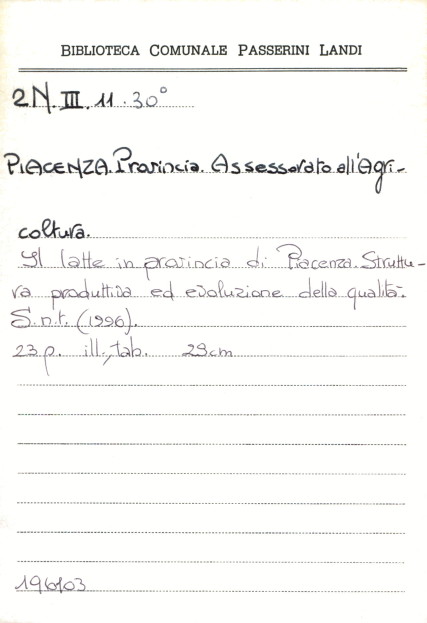 BIBLIOTECA COMUNALE PASSERINI LANDI
2N.III.11.30°
PIACENZA.Provincia. Assessorato all'Agri-
coltura.
Il latte in provincia di Piacenza.Struttu-
ra produttiva ed evoluzione della qualità.
S.n.t. (1996).
23 p. ill., tab. 29 cm